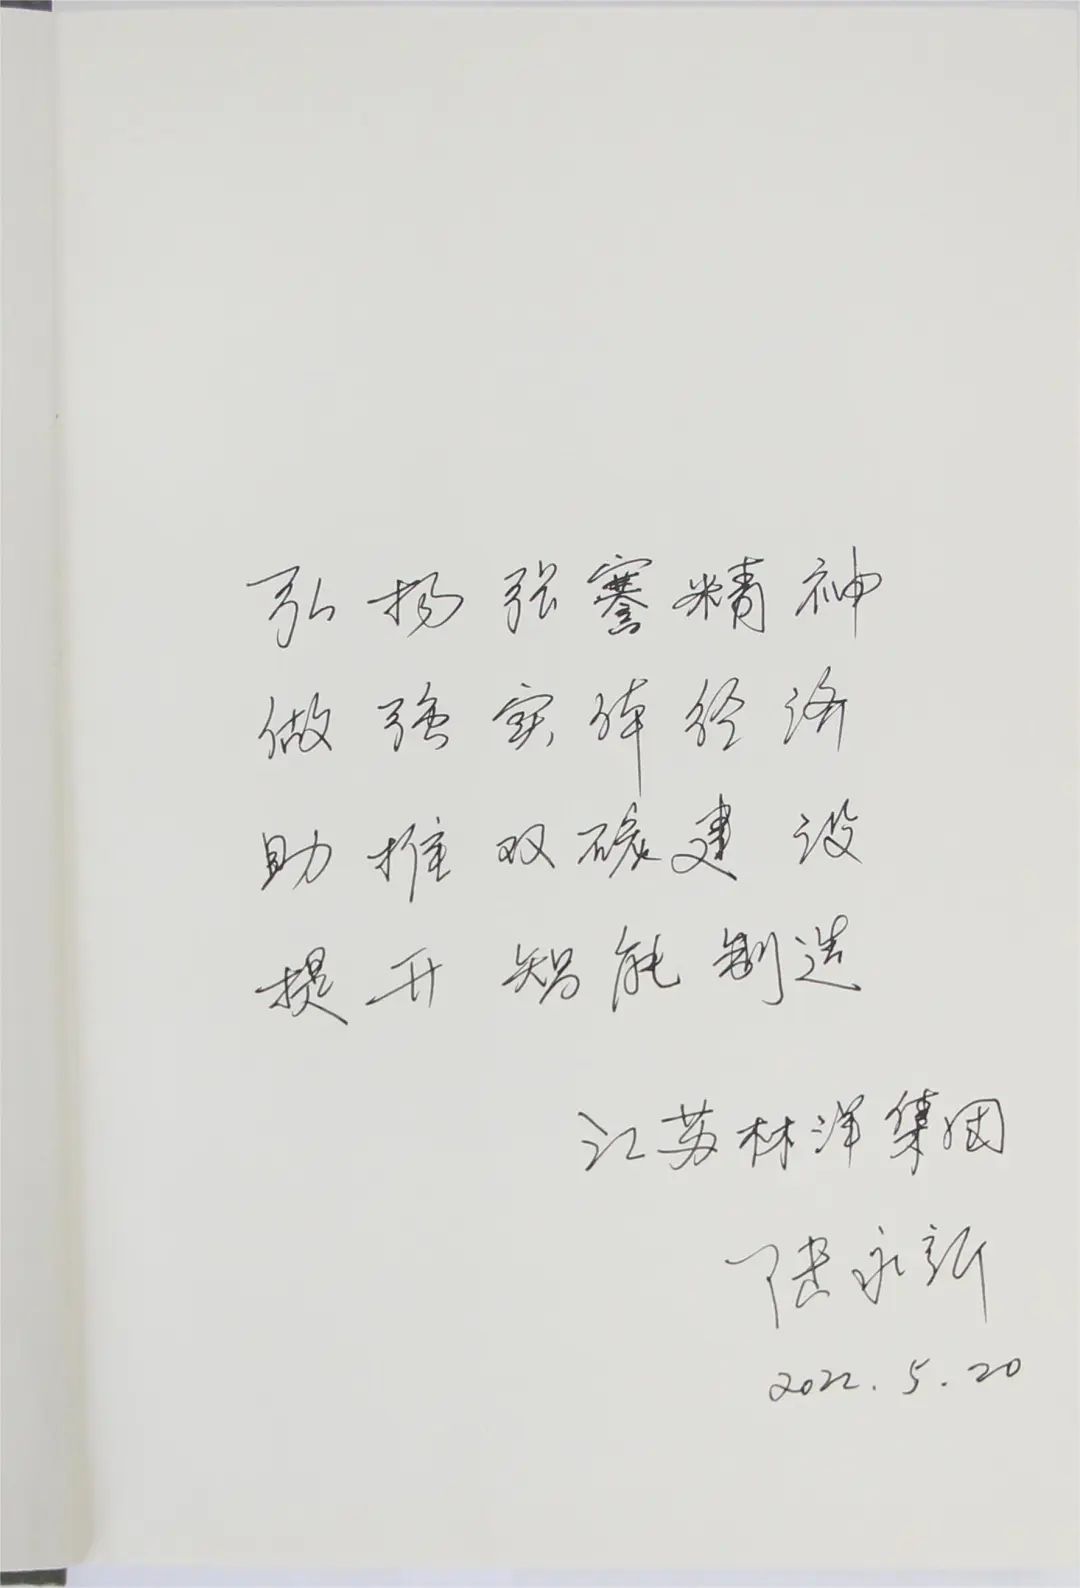 弘扬张謇精神
做强实体经济
助推双碳建设
提升智能制造
江苏林洋集团
陆永新
2022.5.20